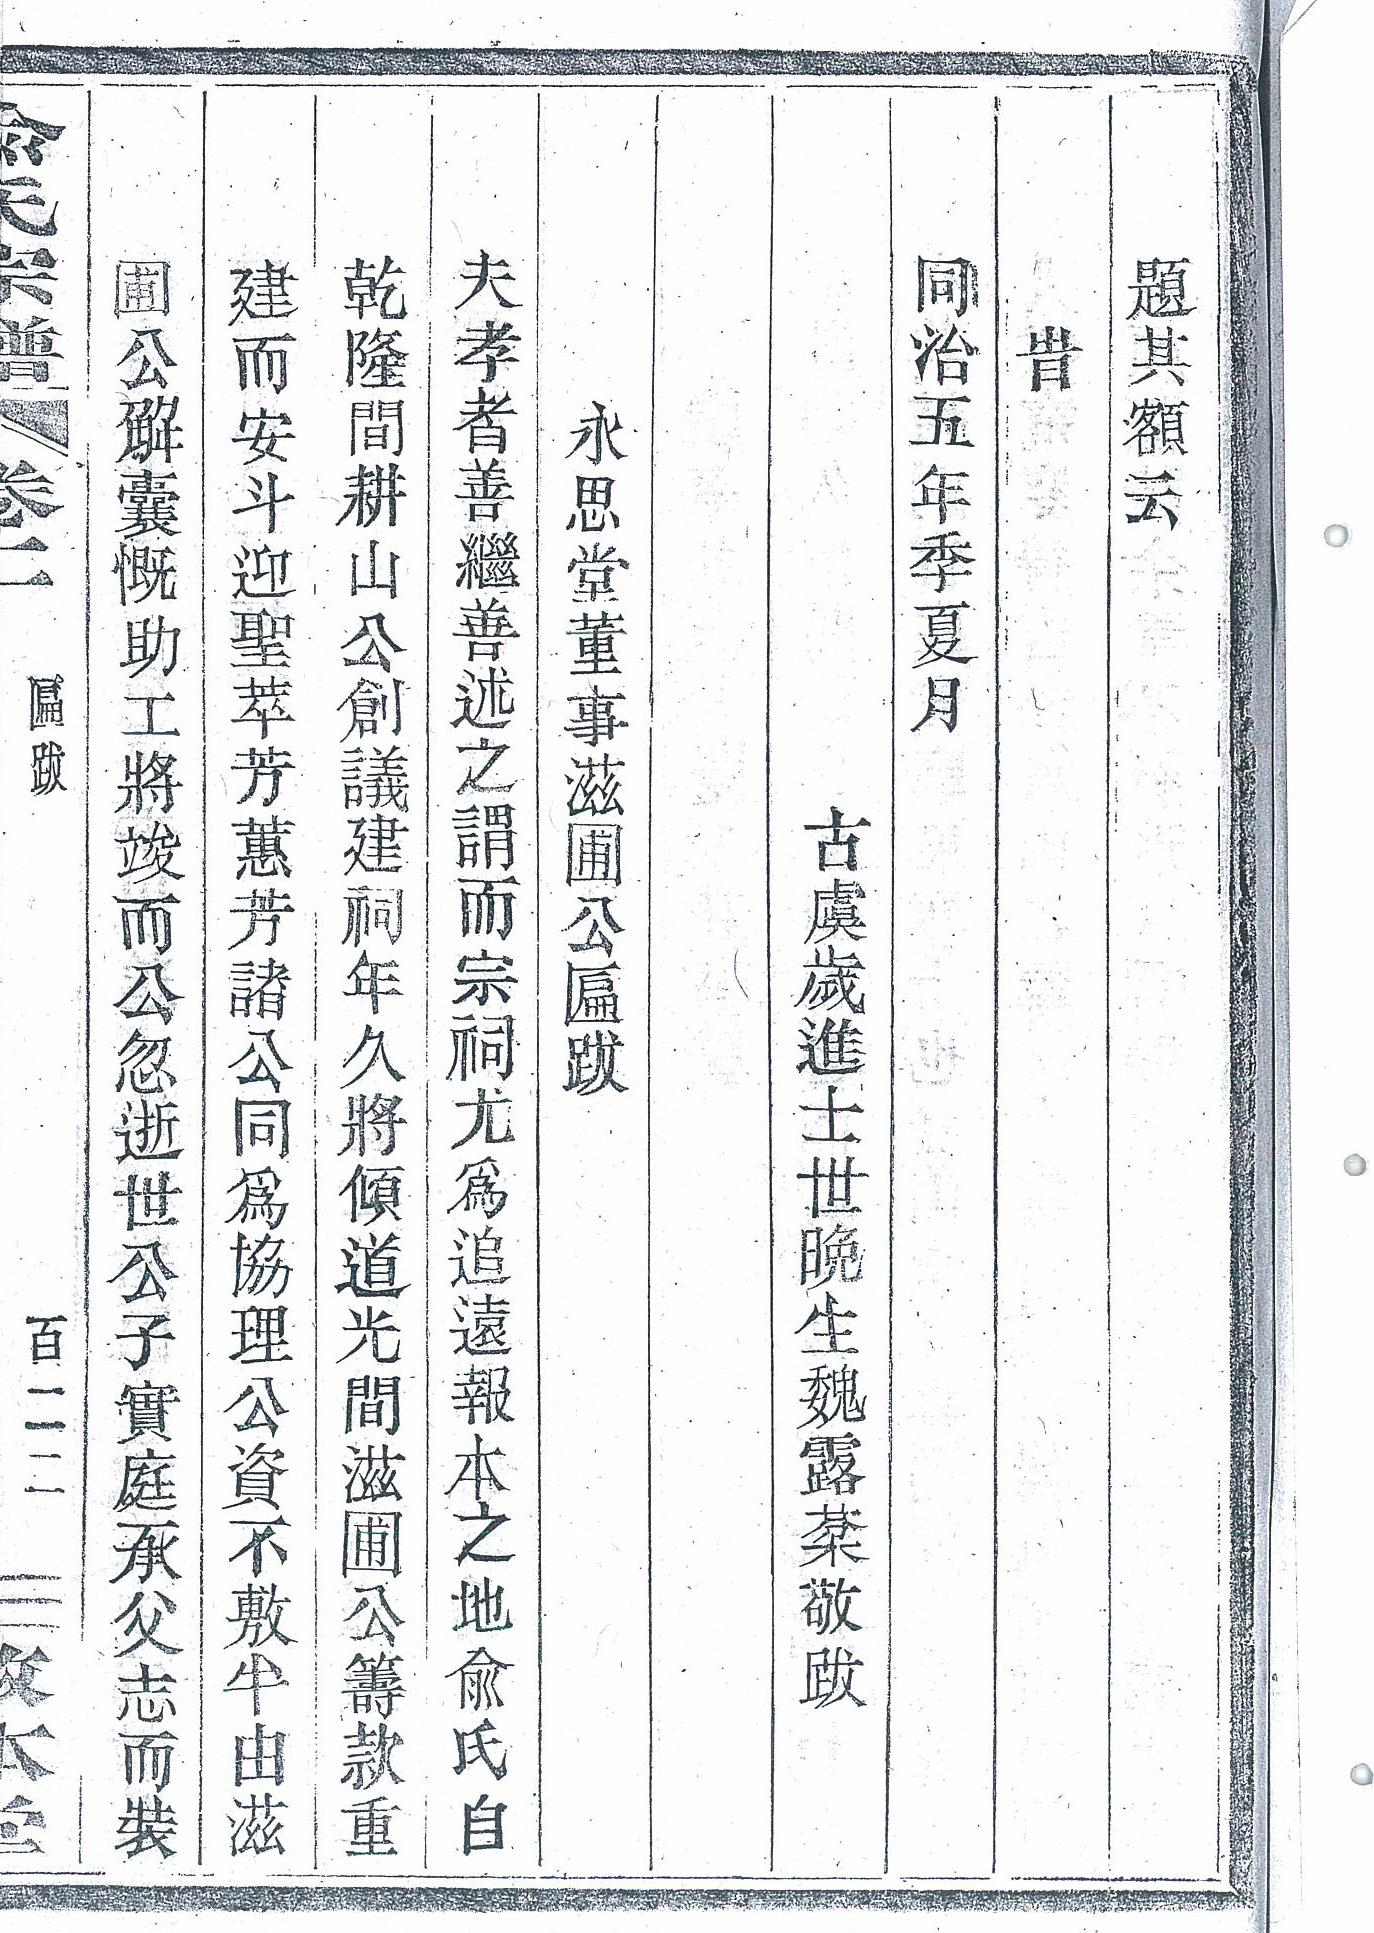 題其額云
旹
同治五年季夏月
古虞歲進士世晚生魏露棻敬跋
永思堂董事滋圃公匾跋
夫孝者善繼善述之謂而宗祠尤爲追遠報本之地俞氏自
乾隆間耕山公創議建祠年久將傾道光間滋圃公籌款重
建而安斗迎聖萃芳蕙芳諸公同爲協理公資不敷半由滋
圃公解囊慨助工將竣而公忽逝世公子實庭承父志而裝
俞氏宗譜 卷二 匾跋 百二二 敦本堂